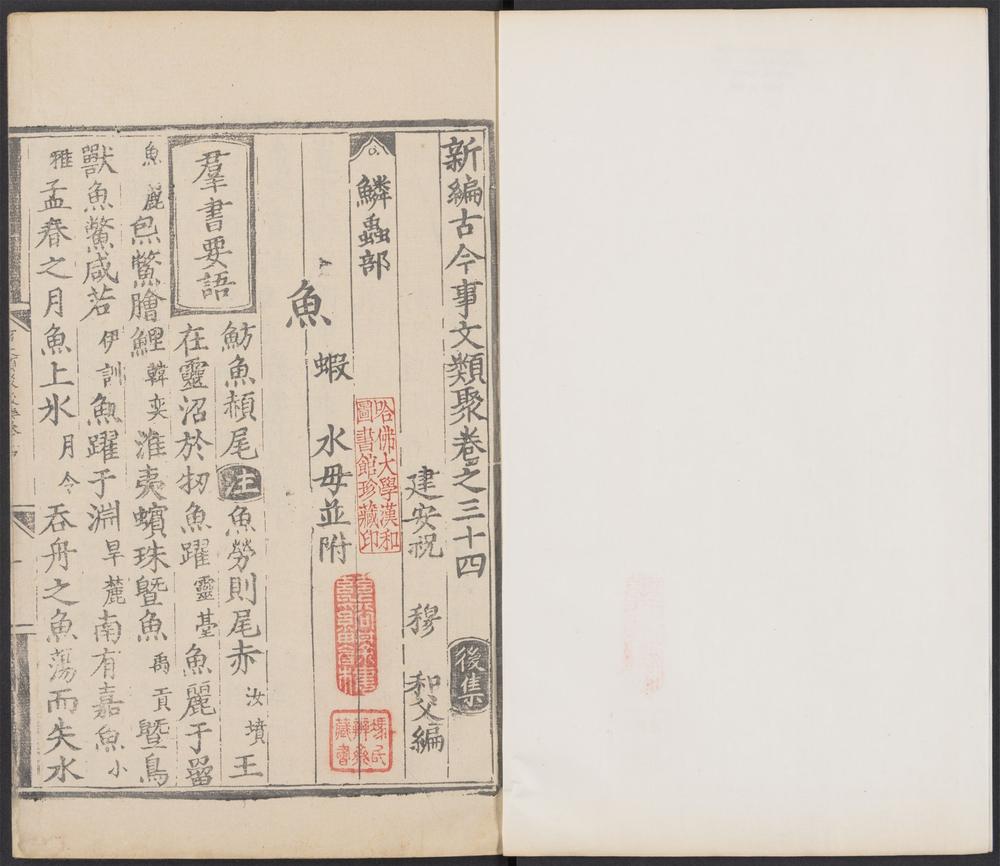 新編古今事文類聚卷之三十四 後集
建安祝 穆 和父編
鱗蟲部
魚 蝦 水母並附
羣書要語
魴魚頳尾 注 魚勞則尾赤 汝墳 王
在靈沼於牣魚躍 靈臺 魚麗于罶
魚麗 炰鱉膾鯉 韓奕 淮夷蠙珠曁魚 禹貢 曁鳥
獸魚鱉咸若 伊訓 魚躍于淵 旱麓 南有嘉魚 小
雅 孟春之月魚上氷 月令 吞舟之魚蕩而失水
哈佛大學漢和
圖書館珍藏印